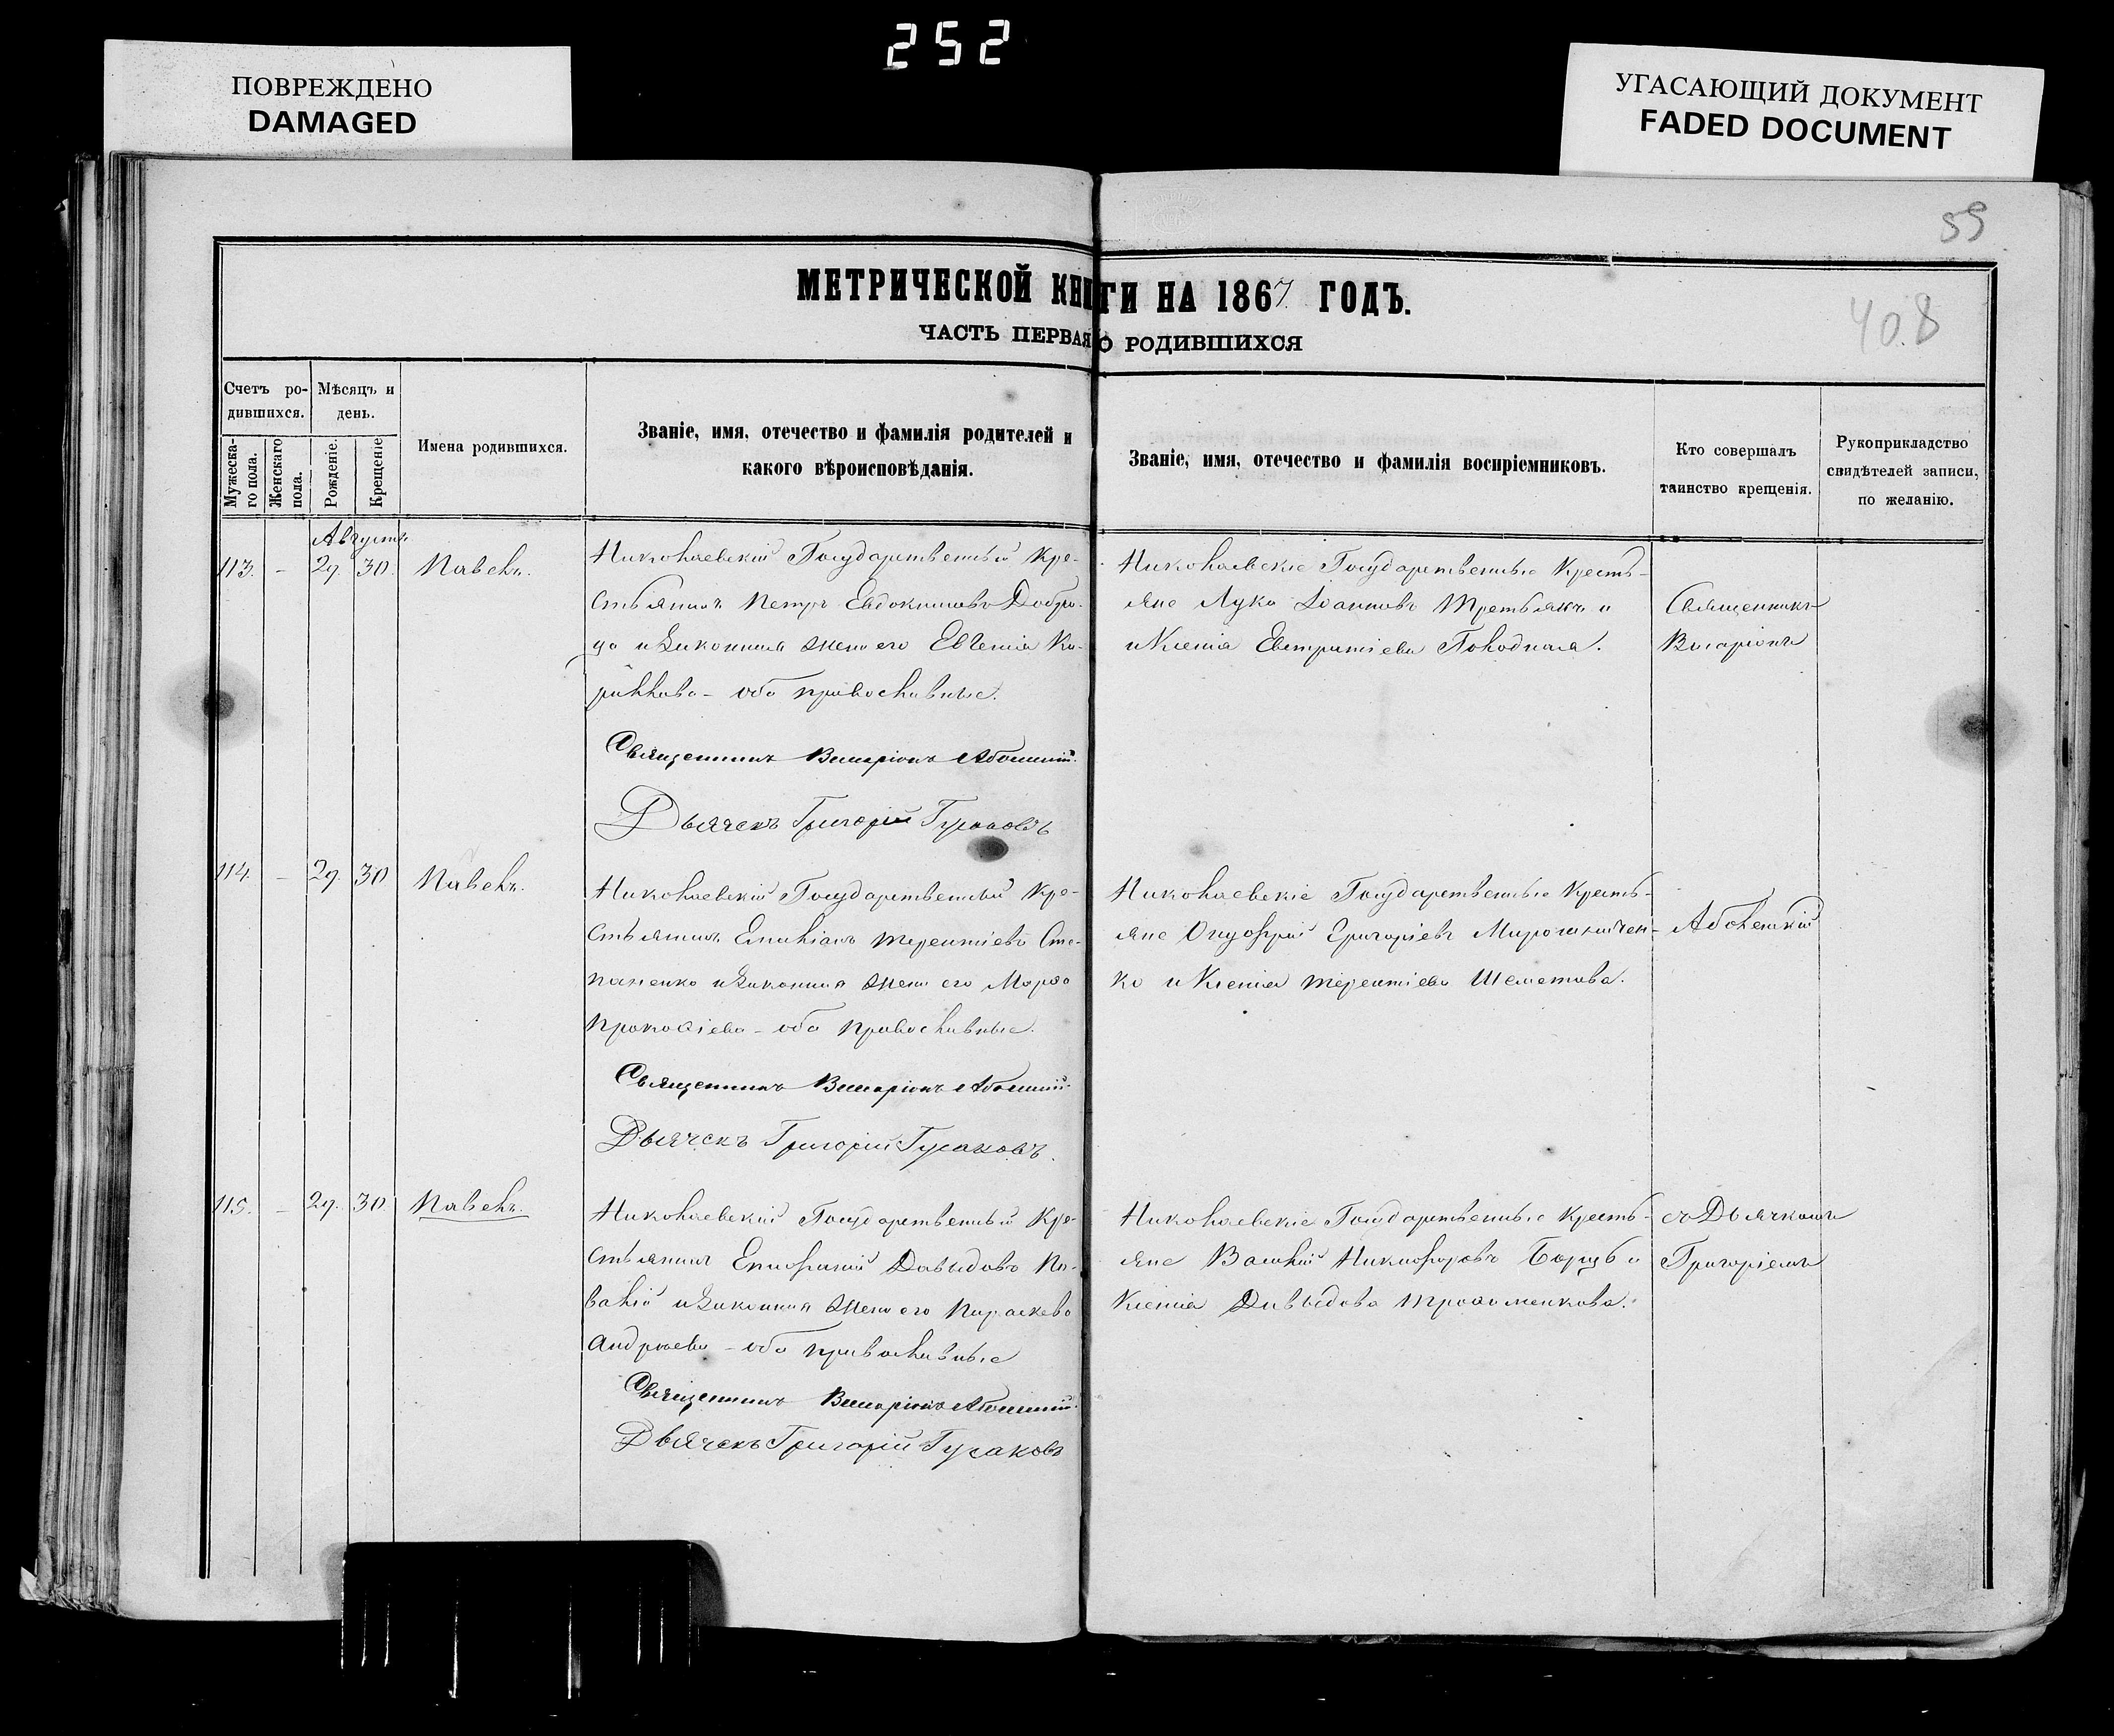 252
ПОВРЕЖДЕНО
DAMAGED
УГАСАЮЩИЙ ДОКУМЕНТ
FADED DOCUMENT
59
408
МЕТРИЧЕСКОЙ КНИГИ НА 1867 ГОДЪ.
ЧАСТЬ ПЕРВАЯ О РОДИВШИХСЯ
Счетъ ро-
дившихся.
Мужеска-
го пола.
Женскаго
пола.
Мѣсяцъ и
день.
Рожденіе.
Крещеніе
Имена родившихся.
Званіе, имя, отечество и фамилія родителей и
какого вѣроисповѣданія.
Званіе, имя, отечество и фамилія воспріемниковъ.
Кто совершалъ
таинство крещенія.
Рукоприкладство
свидѣтелей записи,
по желанію.
Августъ
113. - 29. 30. Павелъ.
Николаевскій Государственный Кре-
стьянинъ Петръ Евдокимовъ
и законная жена его Евгенія Ки-
риллова - оба православные.
Священникъ Висаріонъ
Дьячекъ Григорій Гусаковъ
Николаевскіе Государственные Кресть-
яне Лука Іоанновъ Третьякъ и
и Ксенія Евстратіева Походная.
Священникъ
Висаріонъ
114. - 29. 30 Павелъ.
Николаевскій Государственный Кре-
стьянинъ Емиліанъ Терентіевъ Сте-
паненко и законная жена его Марѳа
Прокофіева - оба православные.
Священникъ Висаріонъ
Дьячекъ Григорій Гусаковъ.
Николаевскіе Государственные Кресть-
яне Онуфрій Григоріевъ Мирошничен-
ко и Ксенія Терентіева Шеметова.
115. - 29. 30. Павелъ.
Николаевскій Государственный Кре-
стьянинъ Епифаній Давыдовъ Ко-
валій и законная жена его Параскева
Андреева - оба православные
Священникъ Висаріонъ
Дьячекъ Григорій Гусаковъ
Николаевскіе Государственные Кресть-
яне Василій Никифоровъ Борщъ и
Ксенія Давыдова Трофименкова.
съ Дьячкомъ
Григоріемъ